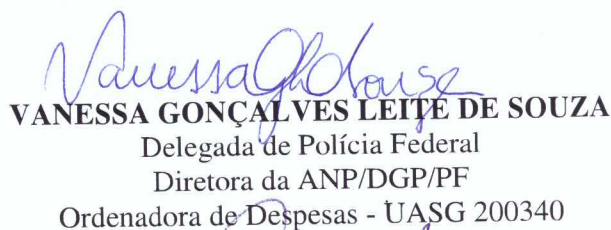 VANESSA GONÇALVES LEITE DE SOUZA
Delegada de Polícia Federal
Diretora da ANP/DGP/PF
Ordenadora de Despesas - UASG 200340